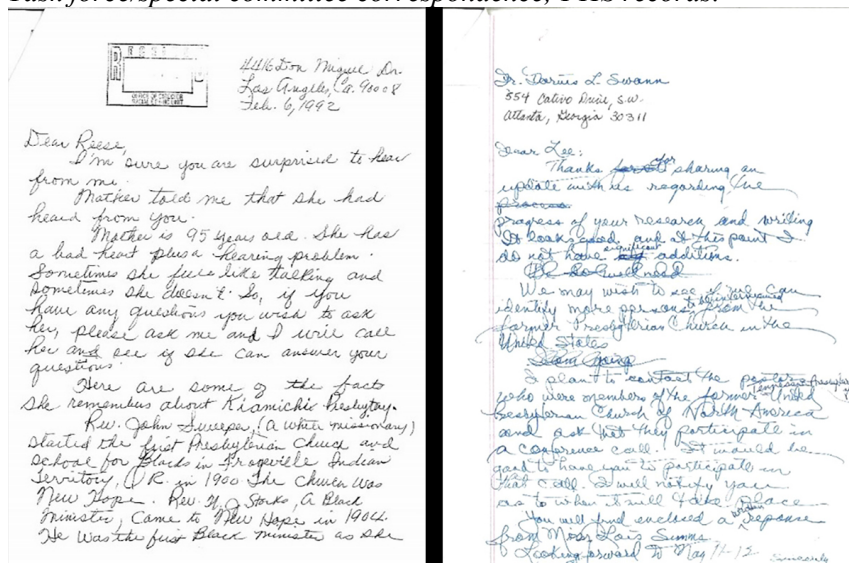 Task force/special committee correspondence, PHS records.
4416 Don Miguel Dr.
Los Angeles, Ca. 90008
Feb. 6, 1992
Dear Reese,
I'm sure you are surprised to hear
from me.
Mother told me that she had
heard from you.
Mother is 95 years old. She has
a bad heart plus a hearing problem.
Sometimes she feels like talking and
sometimes she doesn't. So, if you
have any questions you wish to ask
her, please ask me and I will call
her and see if she can answer your
questions.
Here are some of the facts
she remembers about Kiamichi Presbytery.
Rev. John Sweeper, (a white missionary)
started the first Presbyterian Church and
school for Blacks in Frogville Indian
Territory, in 1900 The Church was
New Hope. Rev. Storks, A Black
Minister, came to New Hope in 1904.
He was the first Black minister as she
Dr. Darius L. Swann
554 Cativo Drive, S.W.
Atlanta, Georgia 30311
Dear Lee:
Thanks for sharing an
update with us regarding the
process
progress of your research and writing
It looks good and at this point I
do not have significant additions.
We may wish to see if we can
identify more persons to be interviewed from the
former Presbyterian Church in the
United States
I plan to contact the
who were members of the former United
Presbyterian Church of North America
and ask that they participate in
a conference call. It would be
good to have you to participate in
that call. I will notify you
as to when it will take place
You will find enclosed a written response
from Moss Lois Simms
Looking forward to May 11-12
Sincerely